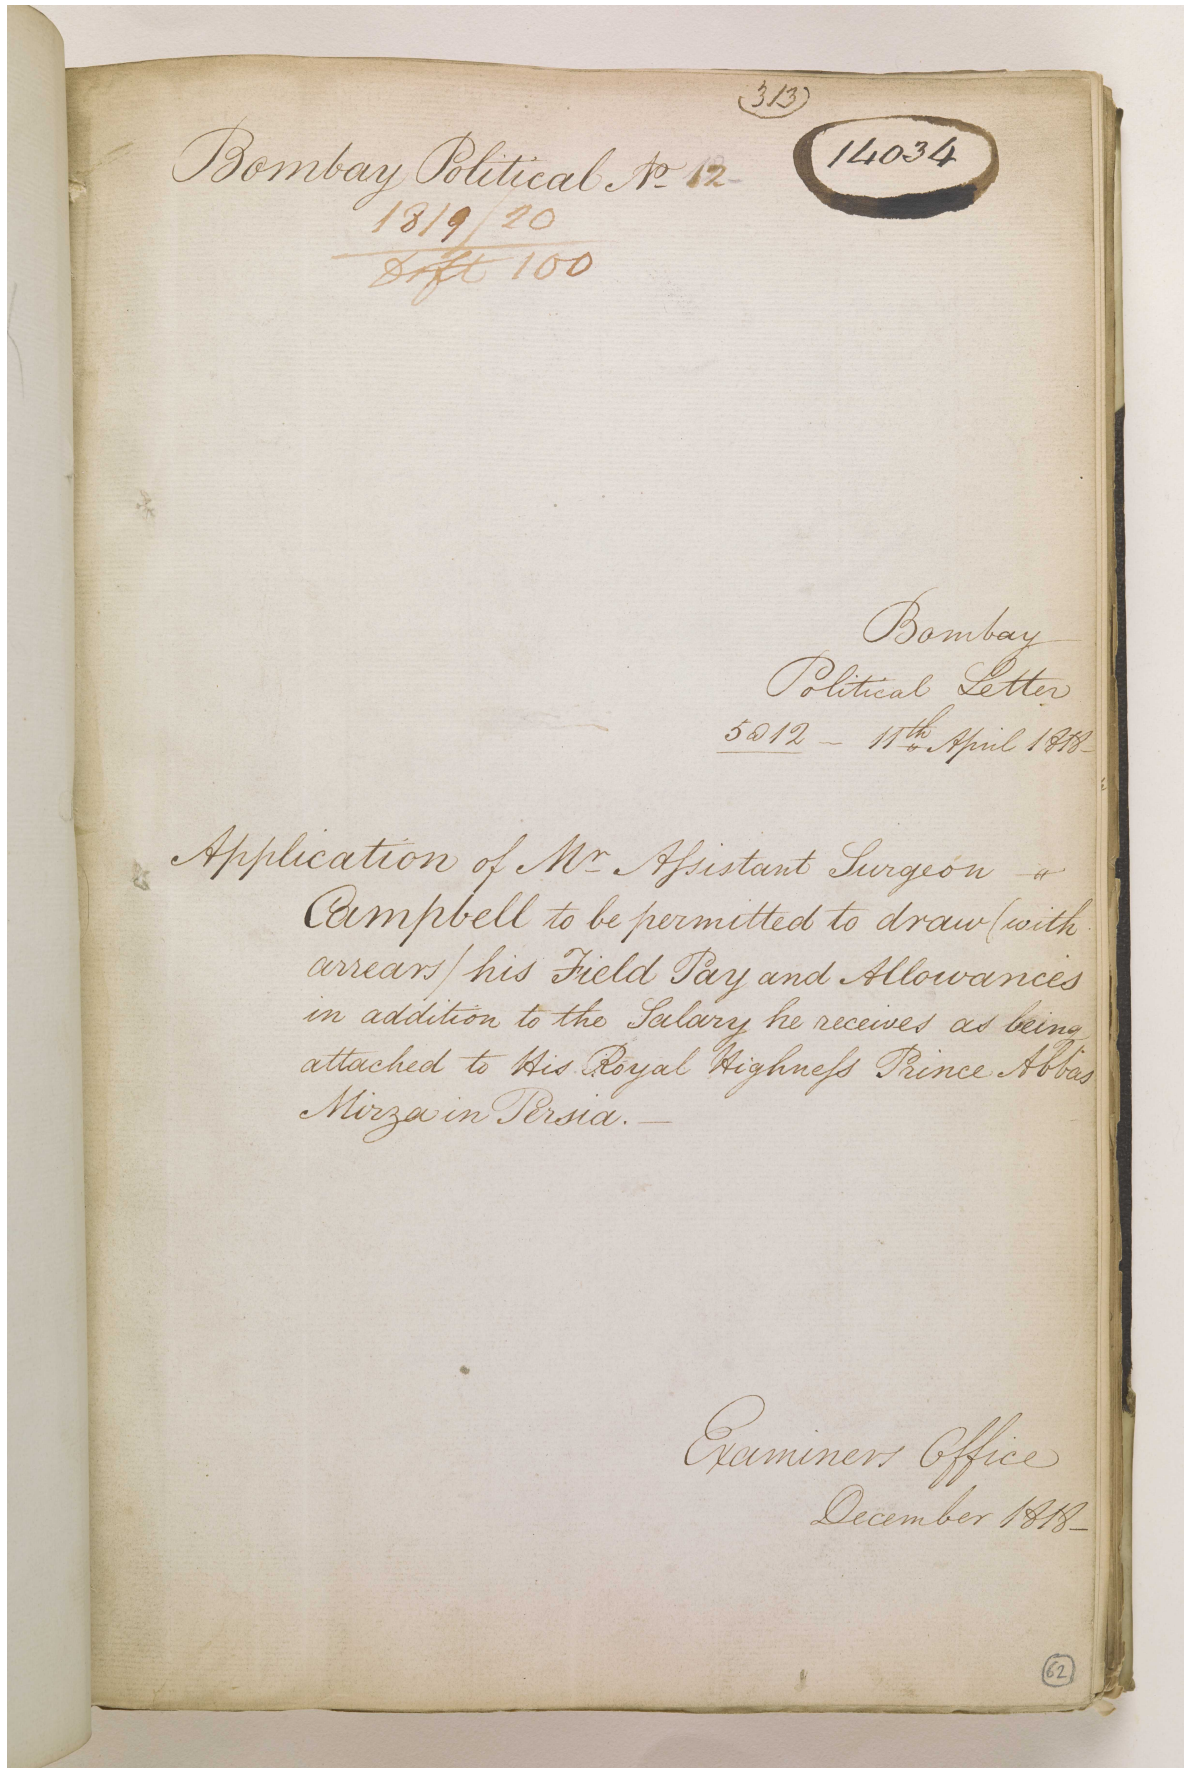 313
14034
Bombay Political No 12
1819/20
Drft 100
Bombay
Political Letter
5 @ 12 - 11th April 1818
Application of Mr Assistant Surgeon
Campbell to be permitted to draw (with
arrears) his Field Pay and Allowances
in addition to the Salary he receives as being
attached to His Royal Highness Prince Abbas
Mirza in Persia. -
Examiners Office
December 1818
62